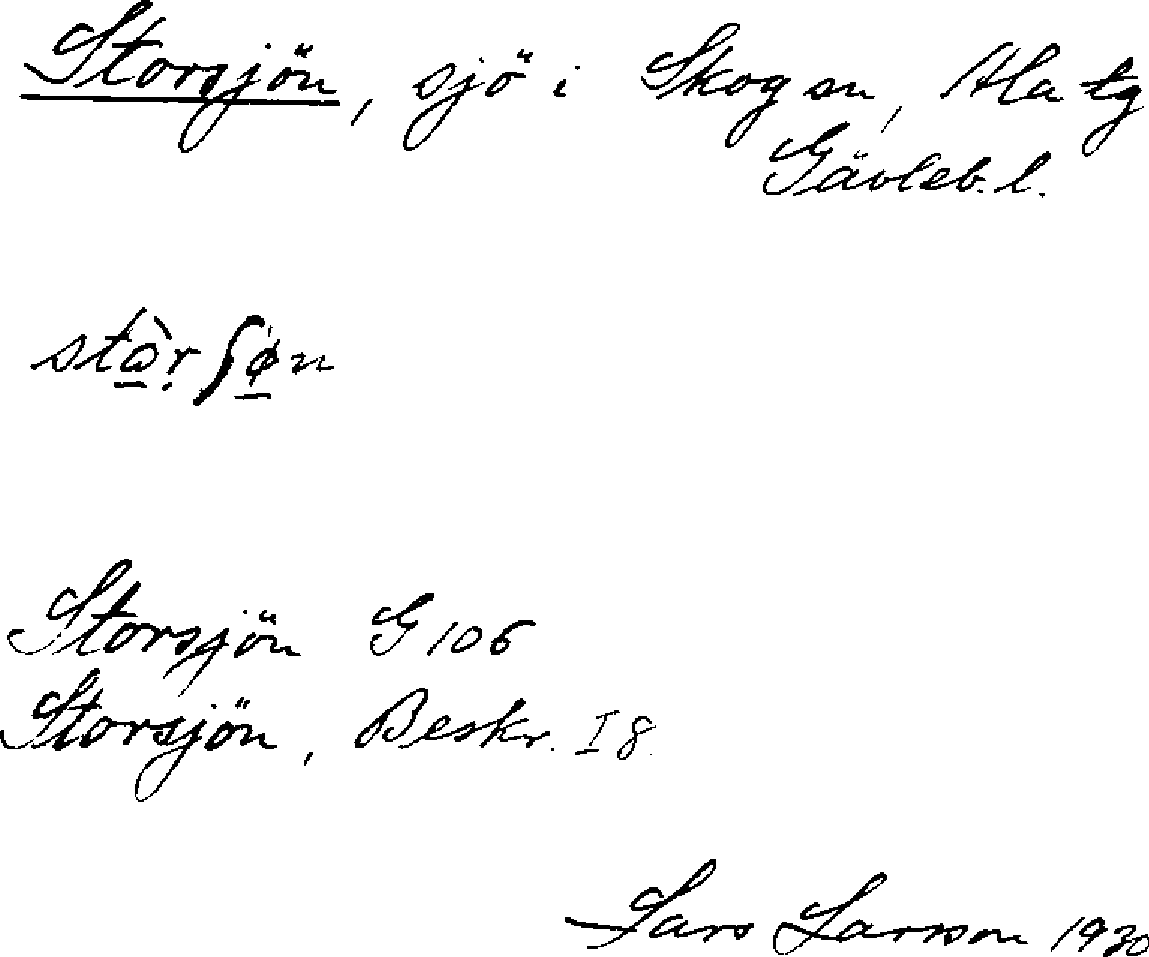 Storsjön, sjö i Skog sn, Ala tg
Gävleb. l.
Storsjön G 106
Storsjön, Beskr. I 8.
Lars Larsson 1930